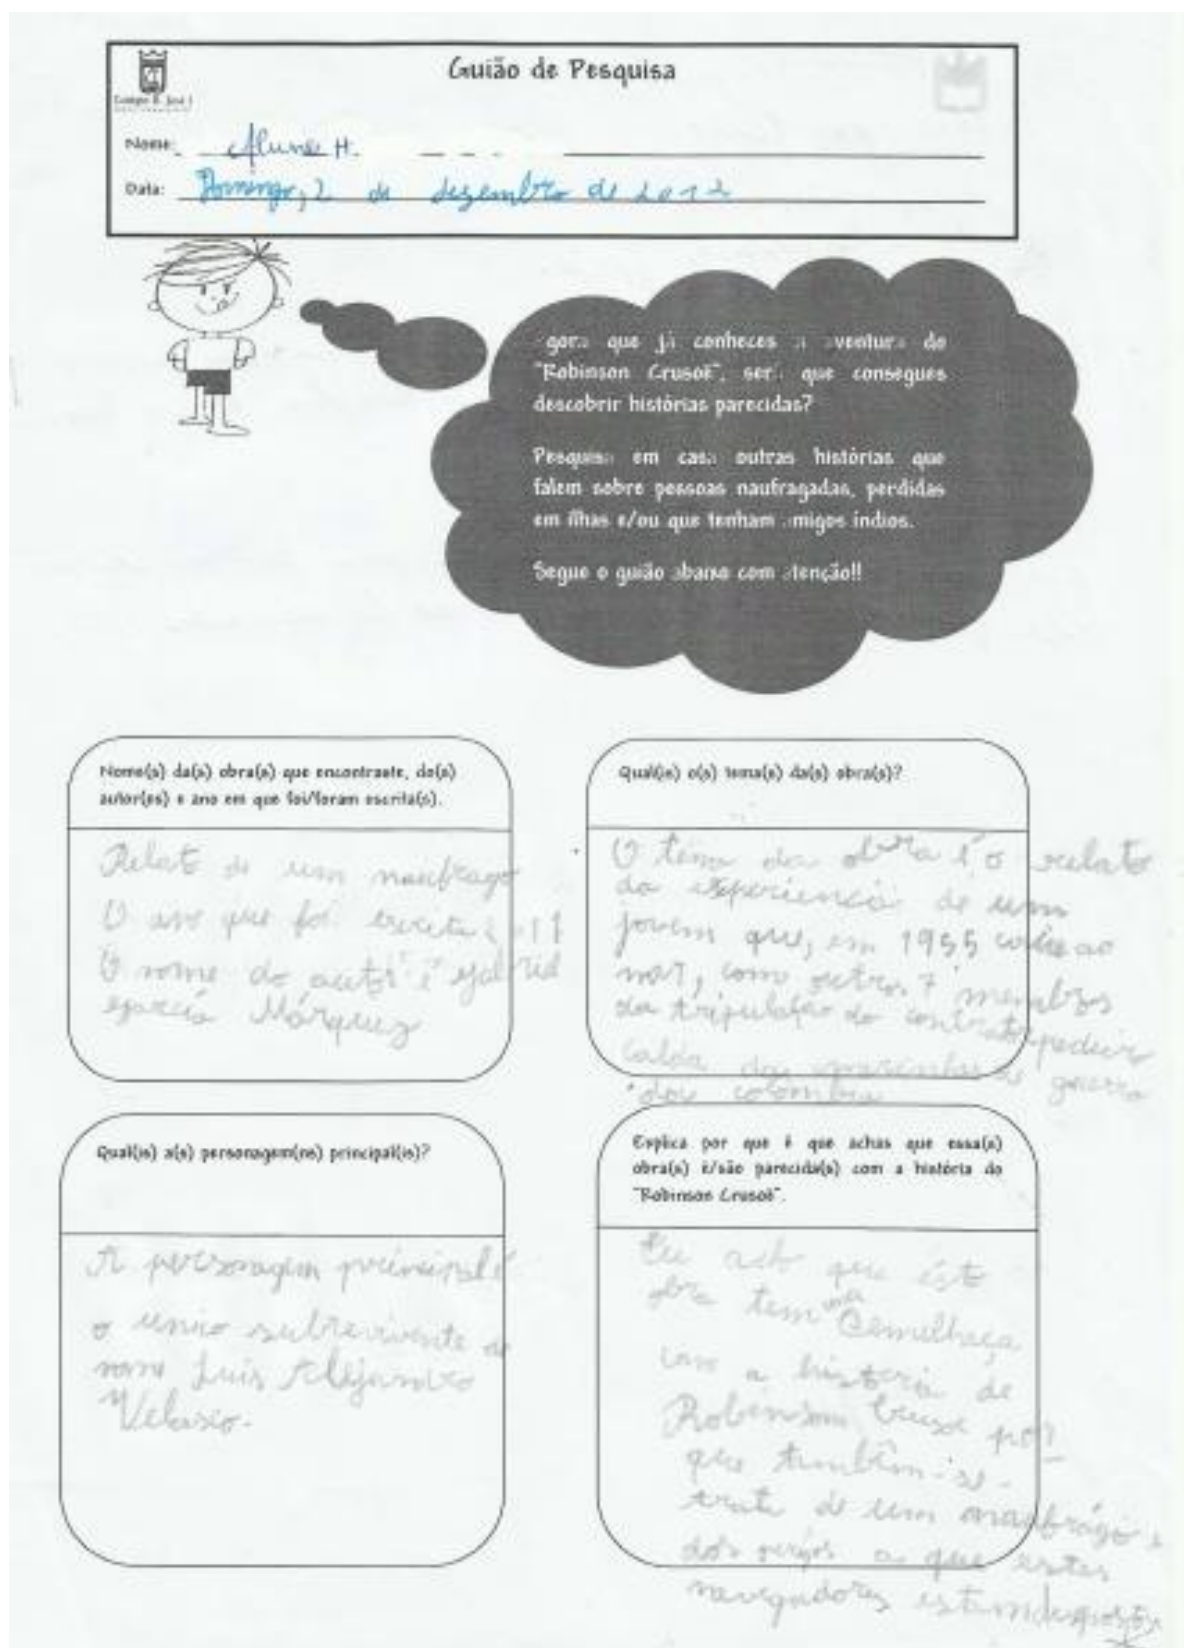 Guião de Pesquisa
Colégio D. José I
Nome: Aluno H.
Data: Domingo, 2 de dezembro de 2012
gora que já conheces a aventura do
"Robinson Crusoé", será que consegues
descobrir histórias parecidas?
Pesquisa em casa outras histórias que
falem sobre pessoas naufragadas, perdidas
em ilhas e/ou que tenham amigos índios.
Segue o guião abaixo com atenção!!
Nome(s) da(s) obra(s) que encontraste, do(s)
autor(es) e ano em que foi/foram escrita(s).
Relato de um naufrago
O ano que foi escrita é
O nome do autor é gabriel
garcía Márquez
Qual(is) o(s) tema(s) da(s) obra(s)?
O tema da obra é, o relato
da experiencia de um
jovem que, em 1955 caíu ao
mar, com outros 7 membros
da tripulação do contratorpedeiro
calda da de guerra
dou colombia
Qual(is) a(s) personagem(ns) principal(is)?
A personagem principal é
o unico subrevivente de
nome Luís Alejandro
Velasco.
Explica por que é que achas que essa(s)
obra(s) é/são parecida(s) com a história do
"Robinson Crusoé".
Eu acho que ést
obra tem uma Cemulhaça
com a historia de
Robinsom Crusoe por
que também-se-
trata de um naufrágio e
dos perigos a que estes
navegadores estam despostos